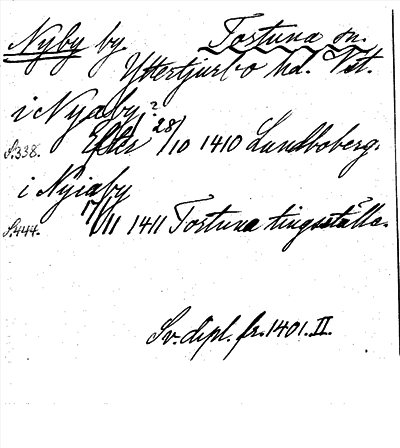 Nyby by. Tortuna sn.
Yttertjurbo hd. Vstl.
i Nyaby?
S.338. Efter 28/10 1410 Lundboberg.
i Nyiaby
S.444. 17/11 1411 Tortuna tingställe.
Sv. dipl. fr. 1401. II.